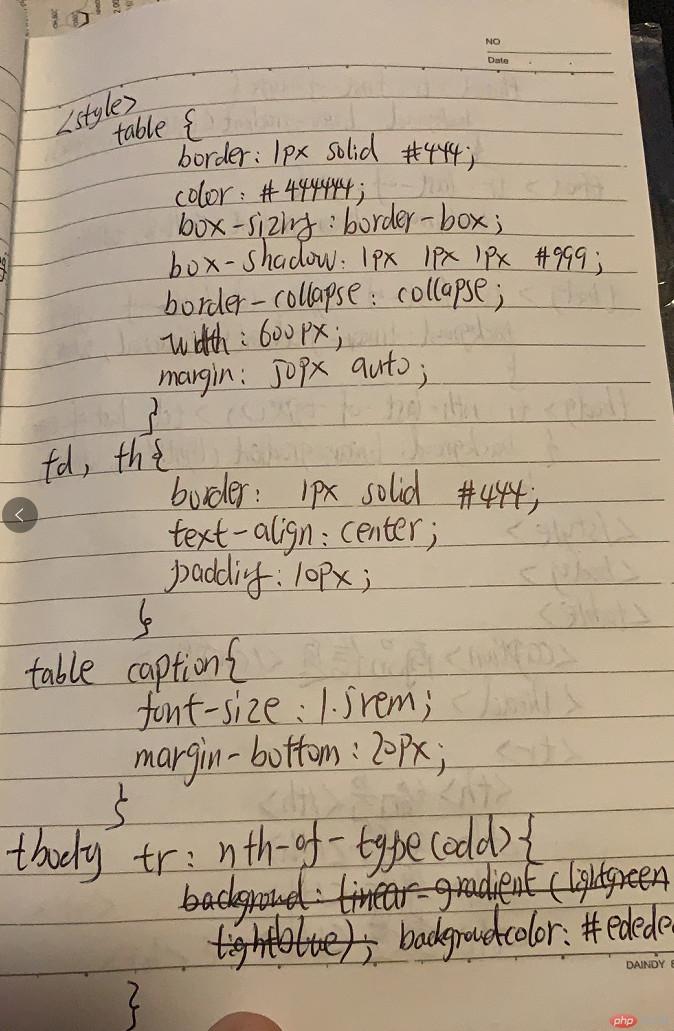 NO
Date
<style>
table {
border: 1px solid #444;
color: #444444;
box-sizing: border-box;
box-shadow: 1px 1px 1px #999;
border-collapse: collapse;
width: 600px;
margin: 50px auto;
}
td, th{
border: 1px solid #444;
text-align: center;
padding: 10px;
}
table caption{
font-size: 1.5rem;
margin-bottom: 20px;
}
tbody tr: nth-of-type(odd){
background: linear-gradient (lightgreen
lightblue); backgroudcolor: #edede
DAINDY
}
php